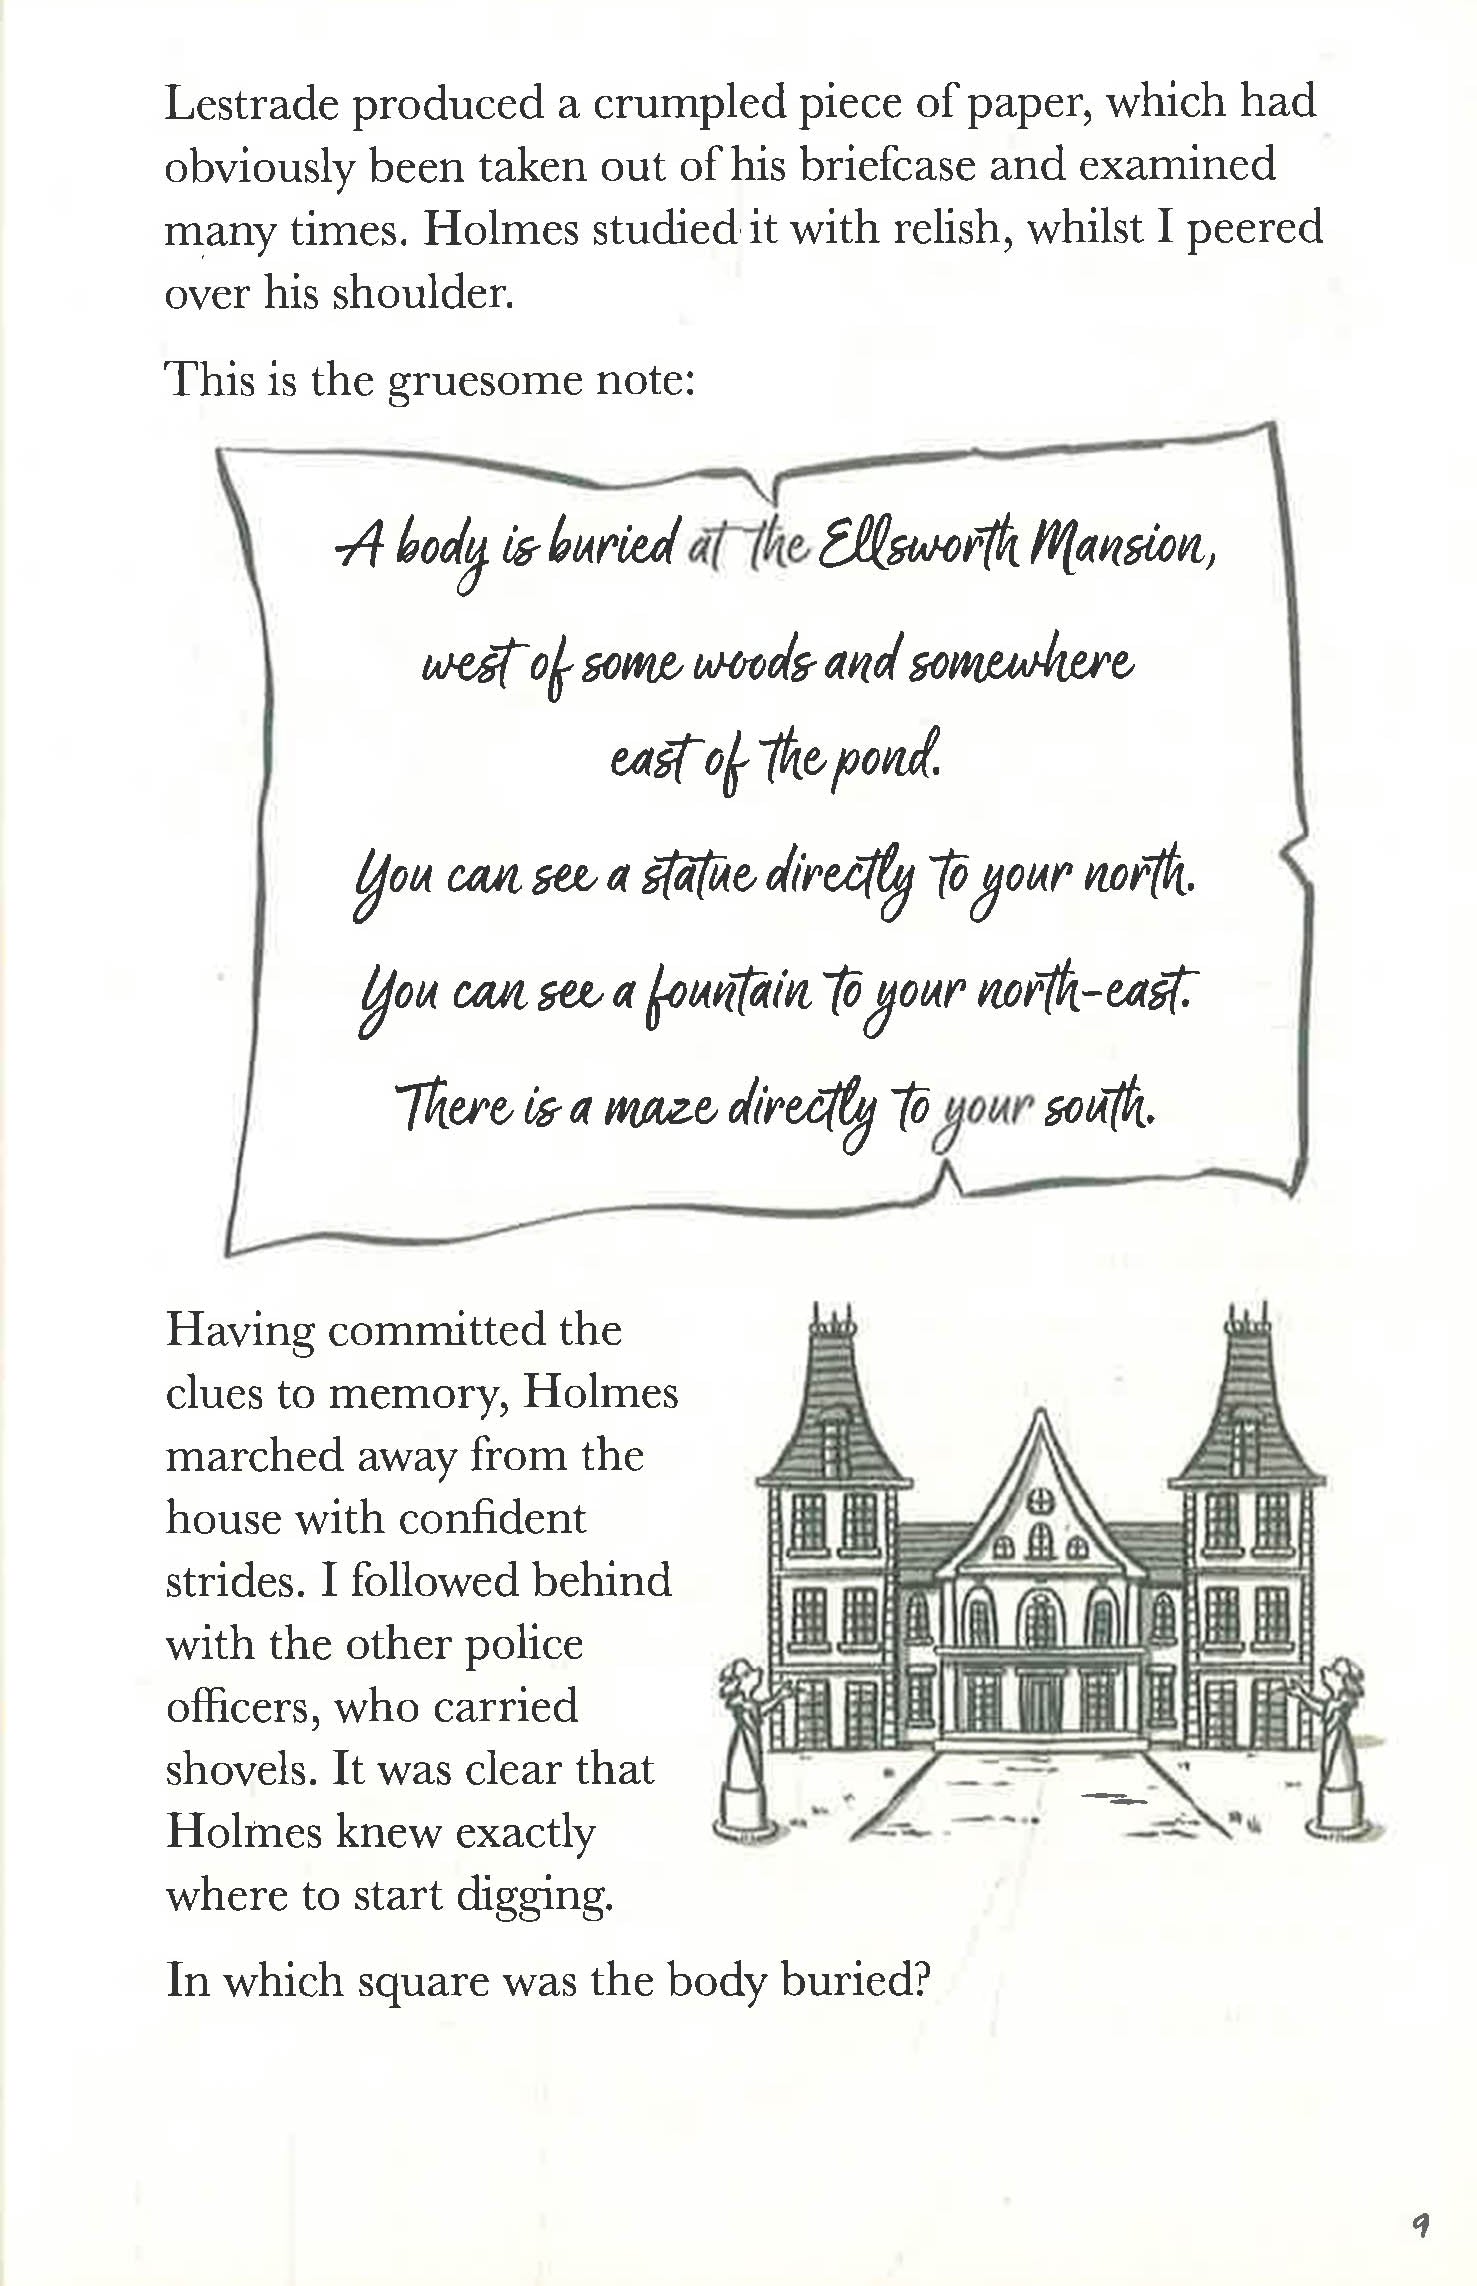 Lestrade produced a crumpled piece of paper, which had
obviously been taken out of his briefcase and examined
many times. Holmes studied it with relish, whilst I peered
over his shoulder.
This is the gruesome note:
A body is buried at the Ellsworth Mansion,
west of some woods and somewhere
east of the pond.
You can see a statue directly to your north.
You can see a fountain to your north-east.
There is a maze directly to your south.
Having committed the
clues to memory, Holmes
marched away from the
house with confident
strides. I followed behind
with the other police
officers, who carried
shovels. It was clear that
Holmes knew exactly
where to start digging.
In which square was the body buried?
9